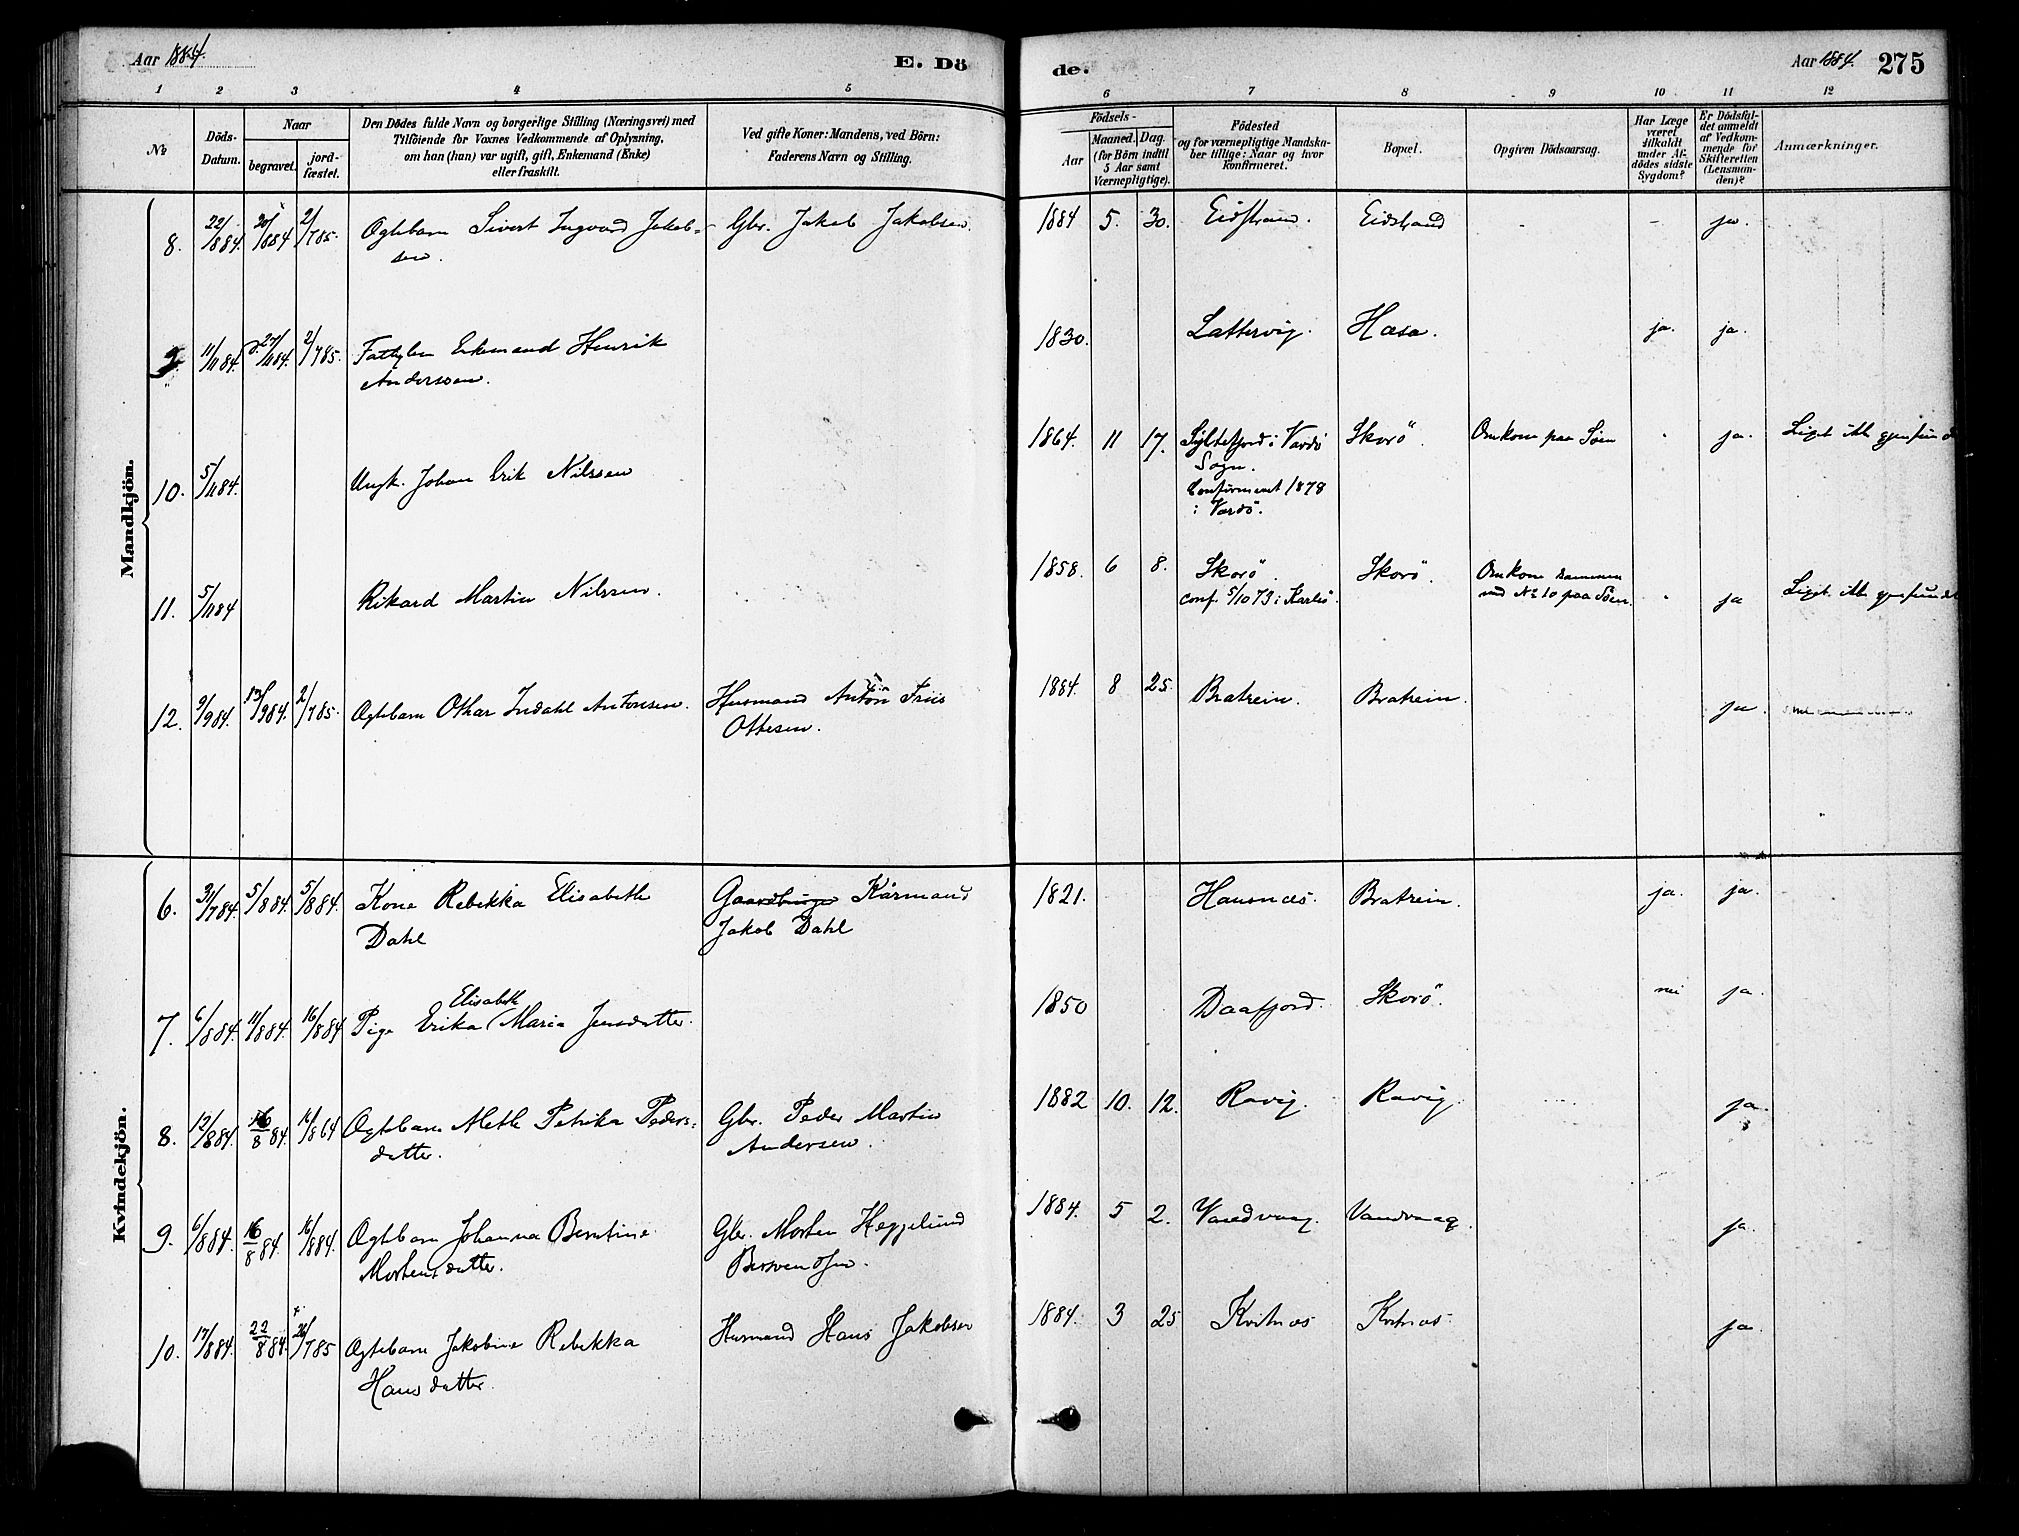 Aar 1884.
E. Döde.
Aar 1884. 275
1 2 3 4 5 6 7 8 9 10 11 12
No
Döds-Datum.
Naar
begravet.
jord-fæstet.
Den Dödes fulde Navn og borgerlige Stilling (Næringsvei) med
Tilföiende for Voxnes Vedkommende af Oplysning,
om han (hun) var ugift, gift, Enkemand (Enke)
eller fraskilt.
Ved gifte Koner: Mandens, ved Börn:
Faderens Navn og Stilling.
Födsels-
Aar
Maaned. Dag.
(for Börn indtil
5 Aar samt
Værnepligtige).
Födested
og for værnepligtige Mandska-
ber tillige: Naar og hvor
konfirmeret.
Bopæl.
Opgiven Dödsaarsag.
Har Læge
været
tilkaldt
under Af-
dödes sidste
Sygdom?
Er Dödsfal-
det anmeldt
af Vedkom-
mende for
Skifteretten
(Lensman-
den)?
Anmærkninger.
Mandkjön.
8. 22/8 84. 2/7 85. Ægtebarn Sivert Ingvard Jakob-
sen.
Gbr. Jakob Jakobsen. 1884 5. 30. Eidstrand. Eidstrand - - ja.
9. 11/11 84. 2/7 85. Fattiglem Enkemand Henrik
Anderssen.
1830. Lattervig. Hasa. ja. ja.
10. 5/11 84. Ungk. Johan Erik Nilssen
1864. 11 17. Syltefjord i Vardö
Sogn.
Confirmeret 1878
i Vardö.
Skorö. Omkom paa Söen - ja. Liget ikke gjenfund
11. 5/11 84 Rikard Martin Nilssen.
1858. 6 8. Skorö.
conf. 5/10 73 i Karlsö.
Skorö. Omkom sammen
med No 10 paa Söen. - ja Liget ikke gjenfundet
12. 9/9 84. 13/9 84. 2/7 85. Ægtebarn Othar Indahl Antonsen. Husmand Anton Friis
Ottesen.
1884. 8 25. Bratrein. Bratrein. ja.
Kvindekjön.
6. 31/7 84. 5/8 84. 5/8 84. Kone Rebekka Elisabeth
Dahl
Gaardbruger Kårmand
Jakob Dahl
1821. Hansnæs. Bratrein. ja. ja.
7. 6/8 84. 11/8 84. 16/8 84 Pige Erika Elisabeth Maria Jensdatter.
1850 Daafjord. Skorö. nei ja.
8. 12/8 84. 16/8 84. 16/8 64 Ægtebarn Mette Petrika Peders-
datter.
Gbr. Peder Martin
Andersen.
1882 10. 12. Ravig. Ravig. ja.
9. 6/8 84. 16/8 84. 16/8 84. Ægtebarn Johanna Berntine
Mortensdatter.
Gbr. Morten Heggelund
1884. 5 2. Vandvaag. Vandvaag. ja.
10. 17/8 84. 22/8 84. 26/7 85 Ægtebarn Jakobine Rebekka
Hansdatter.
Husmand Hans Jakobsen
1884. 3 25 Kvitnæs Kvitnæs. ja.